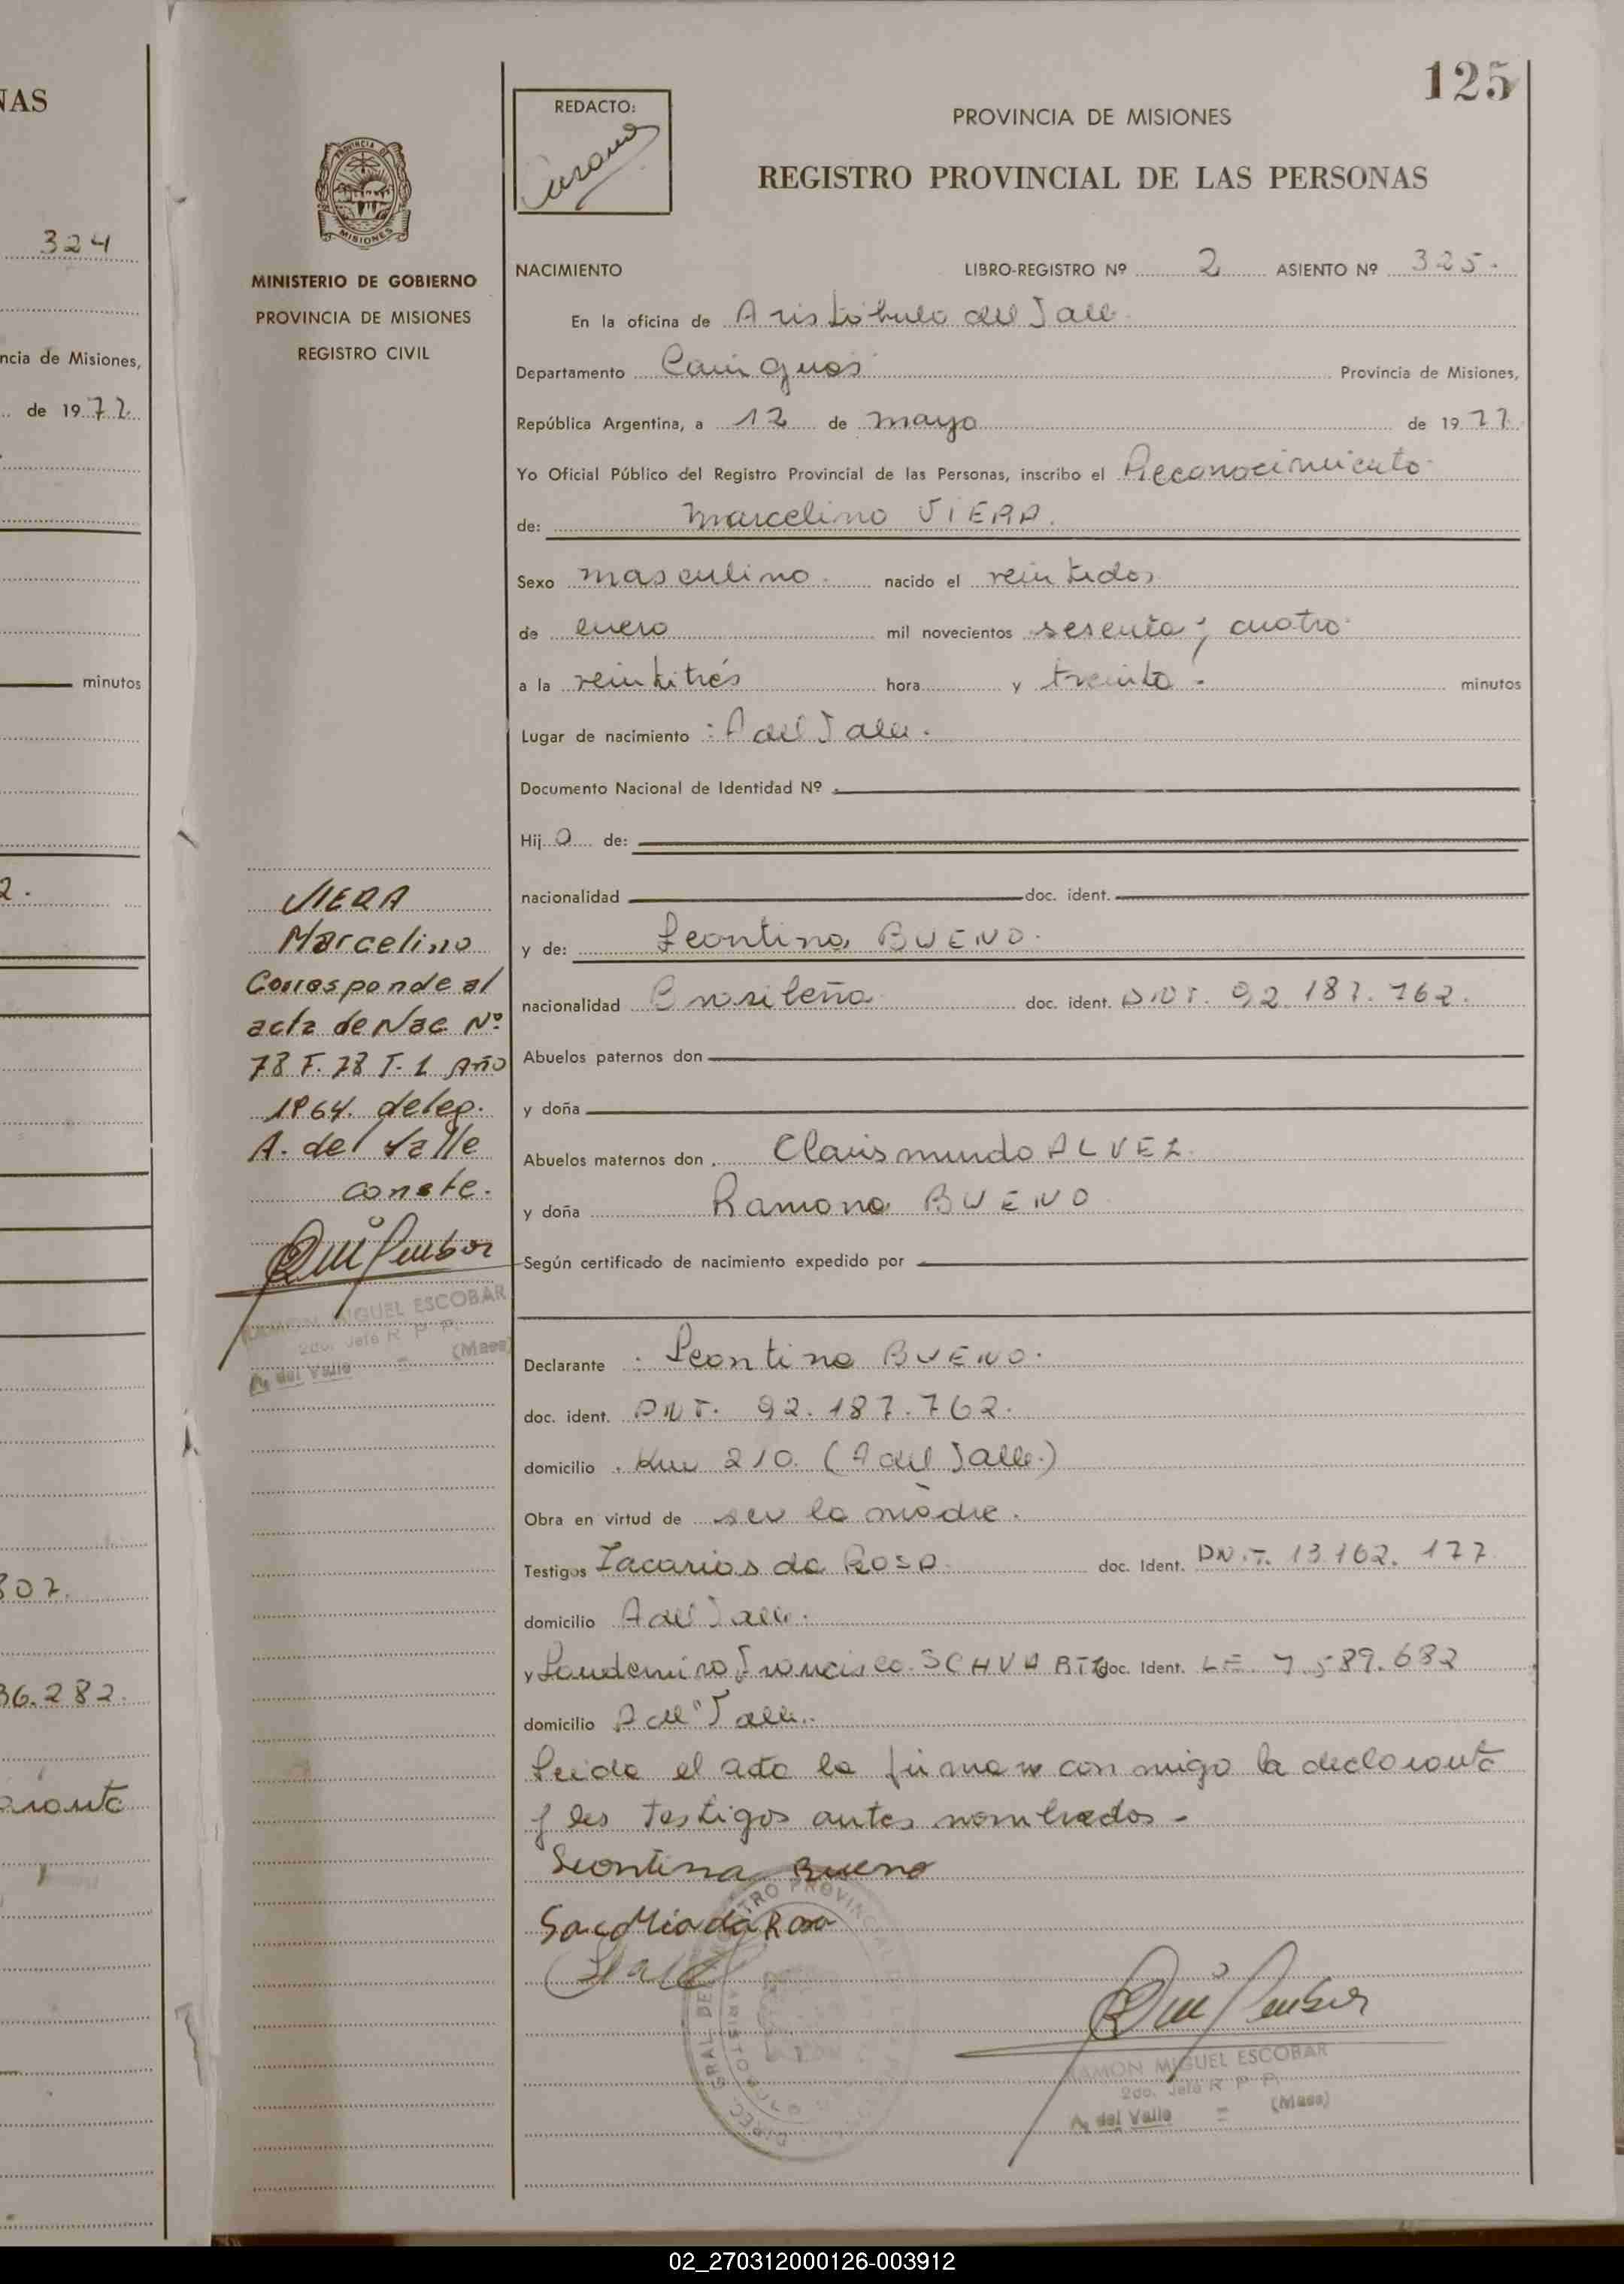 NAS
324
ncia de Misiones,
de 1972.
minutos
2.
307.
36.282.
arante
125
REDACTO:
PROVINCIA DE MISIONES
REGISTRO PROVINCIAL DE LAS PERSONAS
PROVINCIA DE
MISIONES
MINISTERIO DE GOBIERNO
PROVINCIA DE MISIONES
REGISTRO CIVIL
NACIMIENTO LIBRO-REGISTRO Nº 2 ASIENTO Nº 325.
En la oficina de Aristóbulo del Valle
Departamento Cainguas Provincia de Misiones,
República Argentina, a 12 de mayo de 1977.
Yo Oficial Público del Registro Provincial de las Personas, inscribo el Reconocimiento
de: Marcelino VIERA.
Sexo masculino. nacido el veintidos
de enero mil novecientos sesenta y cuatro
a la veintitrés hora y treinta - minutos
Lugar de nacimiento : A del Valle.
Documento Nacional de Identidad Nº
Hij o de:
nacionalidad doc. ident.
y de: Leontina BUENO.
nacionalidad Brasileña doc. ident. D.N.I. 92.187.762.
Abuelos paternos don
y doña
Abuelos maternos don Clarismundo ALVEZ.
y doña Ramona BUENO
Según certificado de nacimiento expedido por
VIERA
Marcelino
Corresponde al
acta de Nac Nº
78 F. 78 T. 1 Año
1964. deleg.
A. del Valle
conste.
RAMON MIGUEL ESCOBAR
2do. Jefe R P P.
A. del Valle = (Mnes)
Declarante : Leontina BUENO.
doc. ident. DNI. 92.187.762.
domicilio . Km 210. (A del Valle.)
Obra en virtud de ser la madre.
Testigos Zacarias da ROSA. doc. Ident. DN.I. 13.162.177
domicilio A del Valle.
y Laudemiro Francisco SCHVARTZ doc. Ident. LE. 7.589.682
domicilio A del Valle.
Leida el acta la firman conmigo la declarante
y los testigos antes nombrados -
Leontina Bueno
Sacaria da Rosa
RAMON MIGUEL ESCOBAR
2do. Jefe R P P.
A. del Valle = (Mnes)
02_270312000126-003912